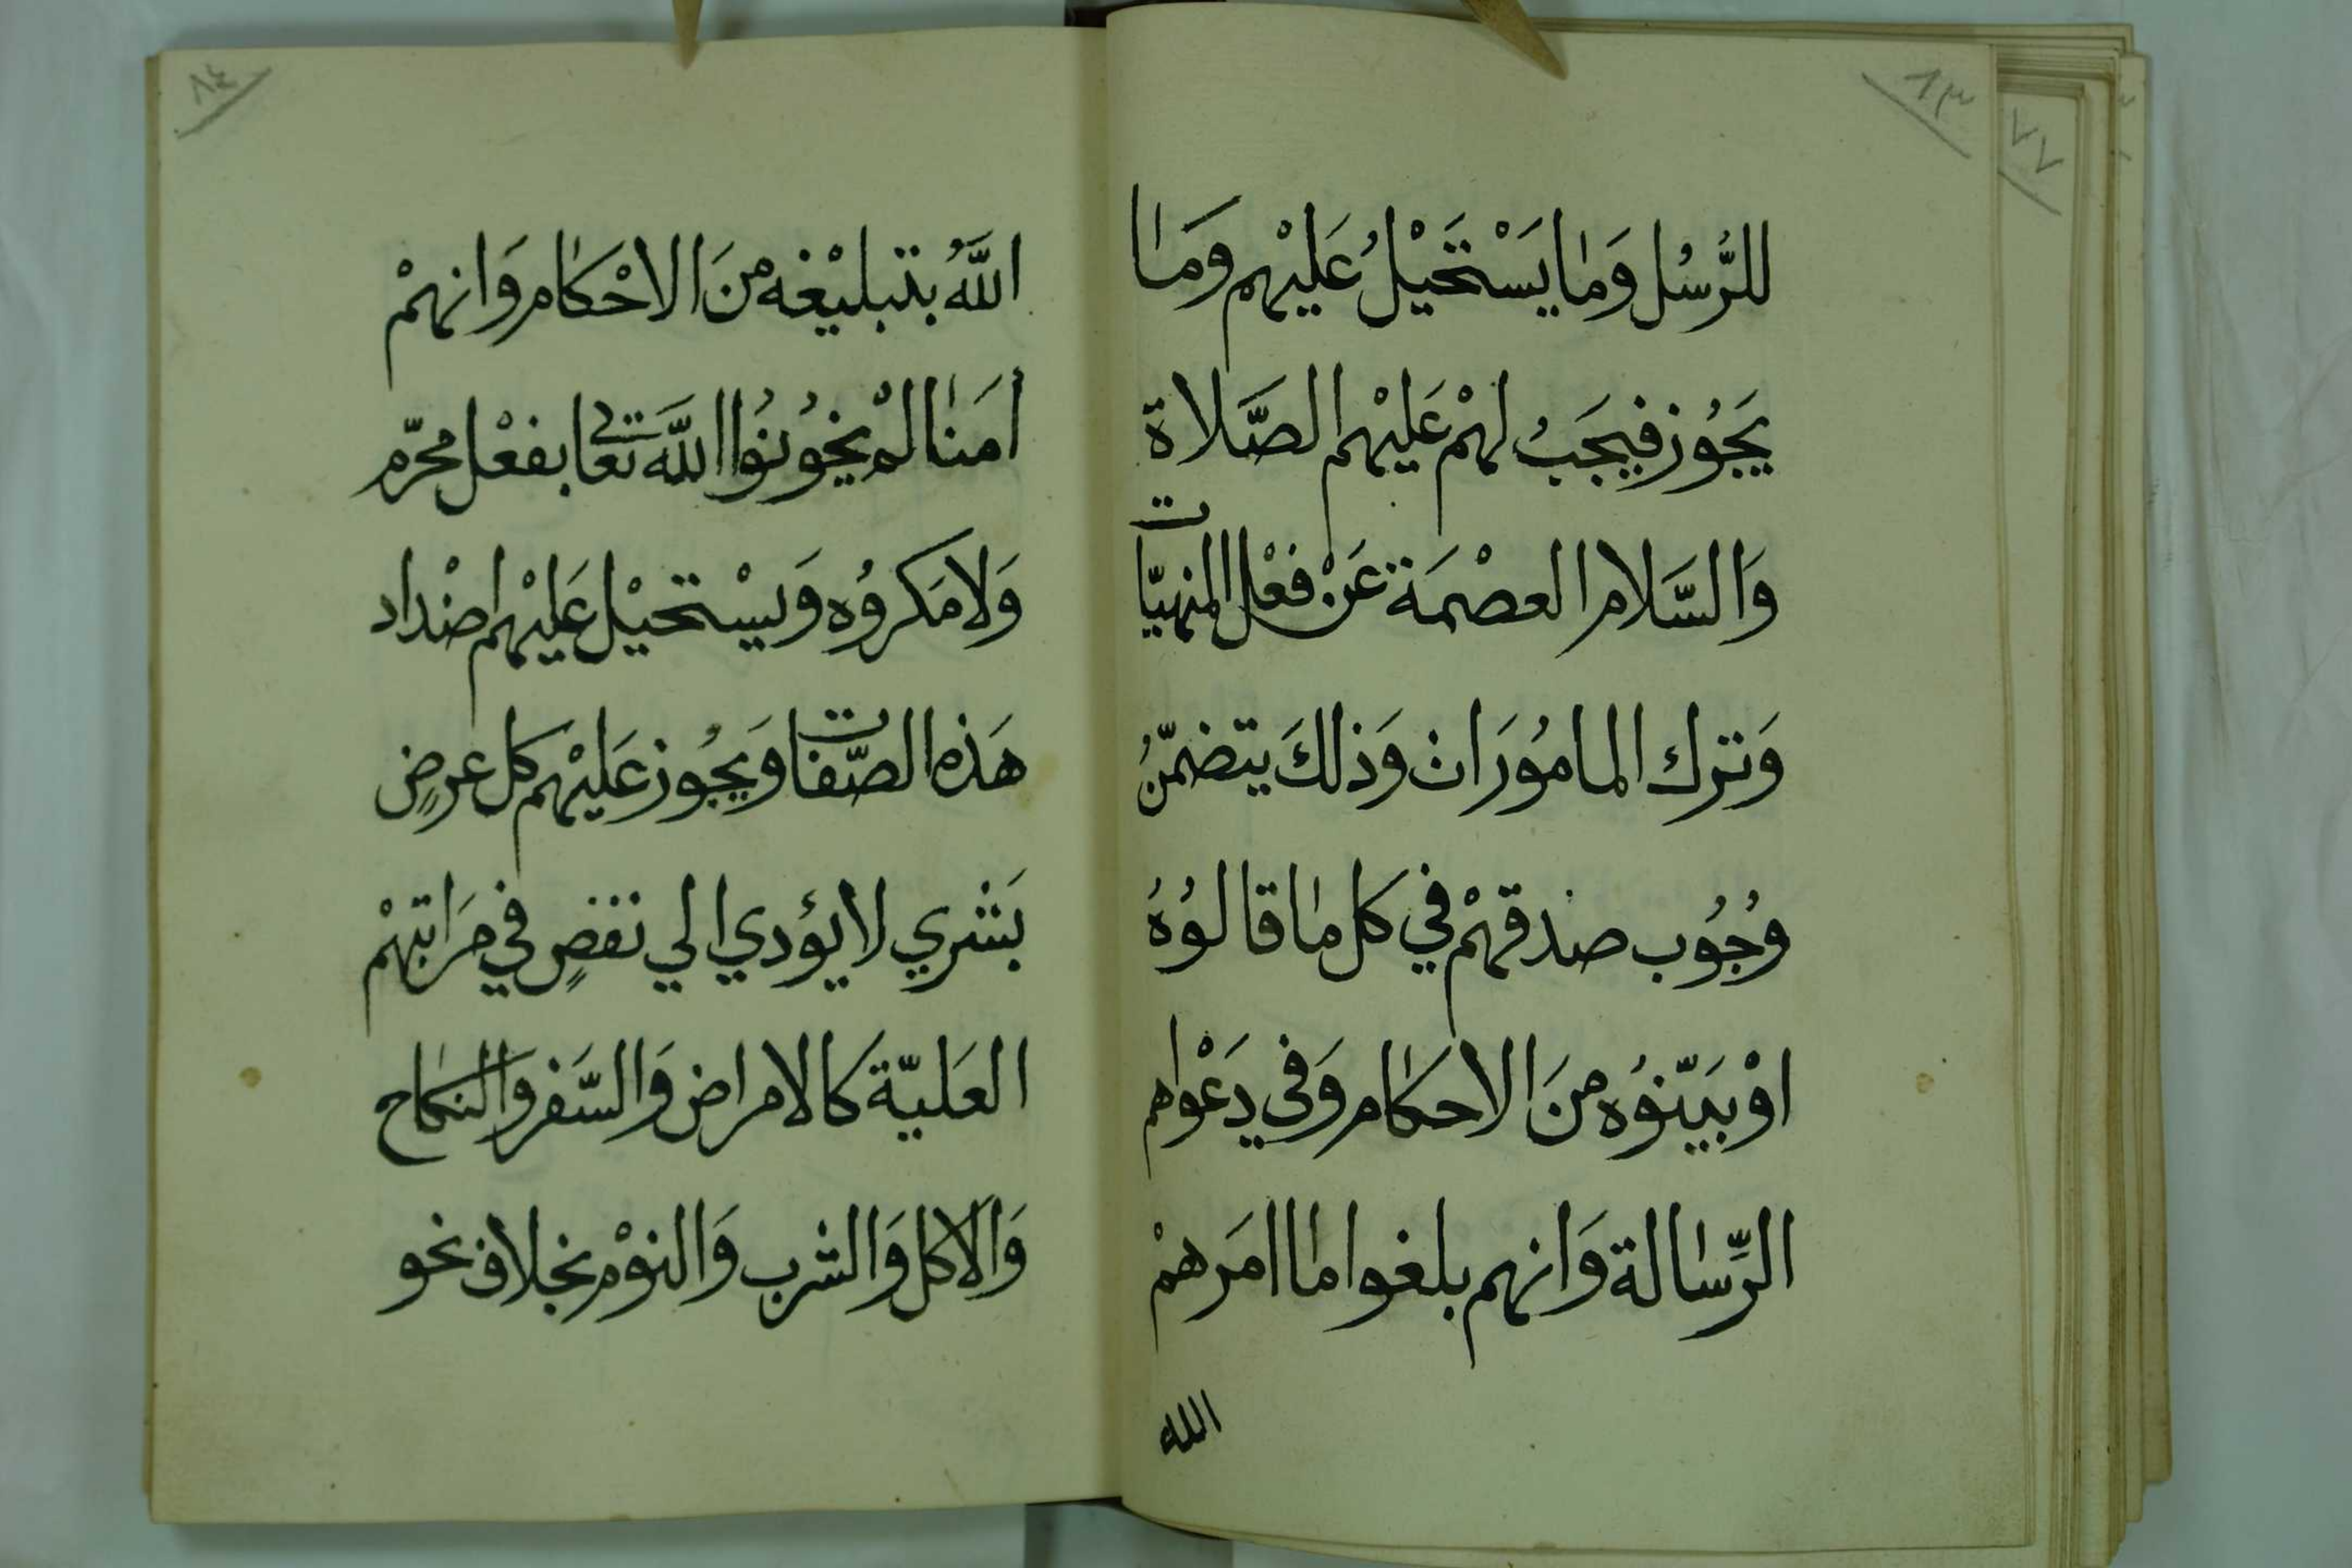 ٨٣
٧٧
للرُّسُل وَمٰا يَسْتَحَيْلُ عَلَيْهم وَمَٰا
يَجُوُز فيجَبُ لهمْ عَليْهم الصَّلاة
وَالسَّلام العصْمَة عَنْ فعْل المنهيّات
وَترك المامُوَرَات وَذلكَ يتضمّنُ
وُجُوُب صدقهمْ في كل مٰا قالوُهُ
اوْ بَيّنوُه منَ الاحكَام وَفي دَعْواهم
الرِّسٰالة وَانهم بلغوا مٰا امَرهمْ
الله
٨٤
اللَّهُ بتبليْغه منَ الاحْكَام وَانهمْ
أمَنٰا لمْ يخوُنوُا اللَّهَ تعالى بفعْل محرّم
وَلامَكروُه وَيسْتحيْل عَليْهم اضْداد
هَذه الصّفات وَيجُوز عَليْهم كل عرضٍ
بَشري لا يؤدي الي نقصٍ في مَراتبهمْ
العَليّة كالامراض وَالسَّفر وَالنكاح
وَالاكل وَالشرب وَالنوْم بخلاف نحو